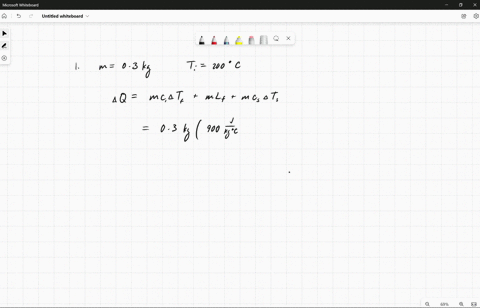 Microsoft Whiteboard
Untitled whiteboard
1. m = 0.3 kg Ti = 200°C
ΔQ = mc₁ΔTf + mLf + mc₂ΔTs
= 0.3 kg ( 900 J/kg°C
69%